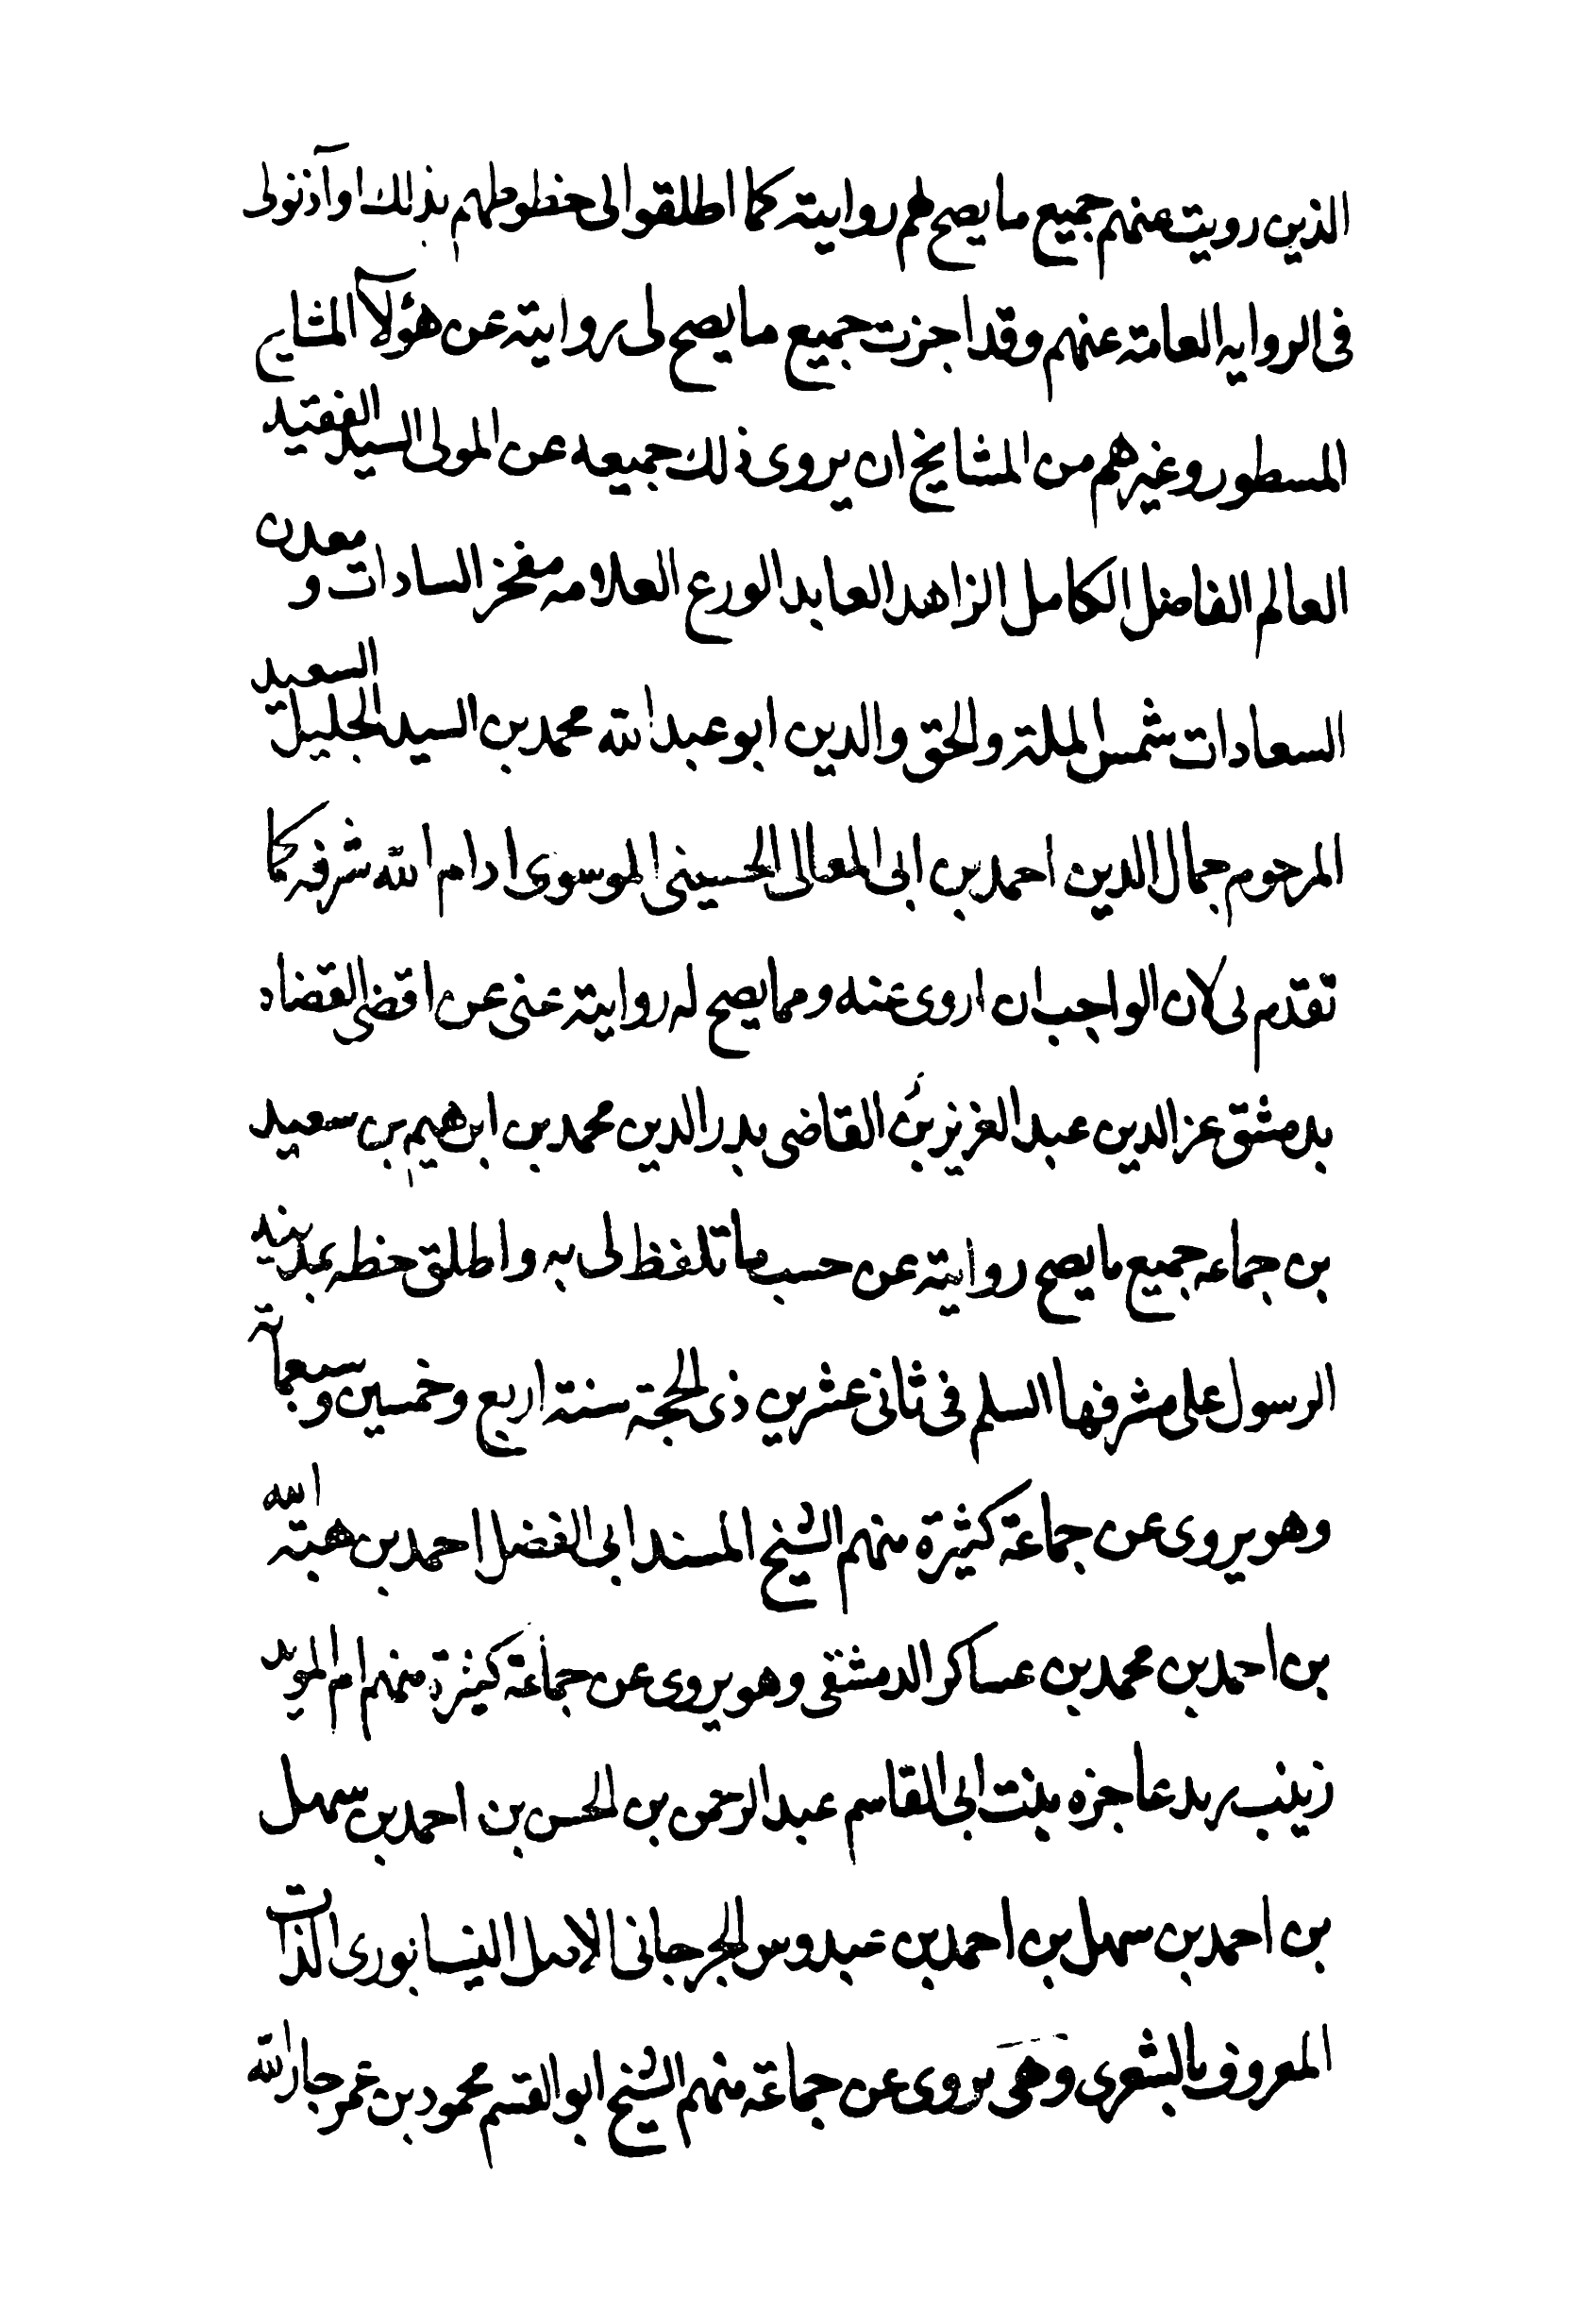 الذين رويت عنهم جميع ما يصح لهم روايته كما اطلقوا لى خطوطهم بذلك او آذنولى
فى الروايه العامة عنهم وقد اجزت جميع ما يصح لى روايته عن هؤلآ المشايخ
المسطور وغيرهم من المشايخ ان يروى ذلك جميعه عن المولى السيد الفقيد
العالم الفاضل الكامل الزاهد العابد الورع العلامه مفخر السادات و معدن
السعادات شمس الملة والحق والدين ابو عبد الله محمد بن السيد الجليل السعيد
المرحوم جمال الدين احمد بن ابى المعالى الحسينى الموسوى ادام الله شرفه كما
تقدم لى كان الواجب ان اروى عنه ومما يصح له روايته عنى عن اقضى القضاه
بدمشق عز الدين عبد العزيز بن القاضى بدر الدين محمد بن ابرهيم بن سعيد
بن جماعه جميع ما يصح روايته عن حسب ما تلفظ لى به واطلق خطه بمدينه
الرسول على مشرفها السلم فى ثانى عشرين ذى الحجة سنة اربع وخمسين وسبعمائة
وهو يروى عن جماعة كثيرة منهم الشيخ المسند ابى الفضل احمد بن هبة الله
بن احمد بن محمد بن عساكر الدمشقى وهو يروى عن جماعة كثيرة منهم ام المويد
زينب بنت ابى القاسم عبد الرحمن بن الحسن بن احمد بن سهل
بن احمد بن سهل بن احمد بن عبدوس الجرجانى الاصل النيسابورى الذات
المعروف بالشعرى وهى يروى عن جماعة منهم الشيخ ابو القسم محمود بن عمر جار الله